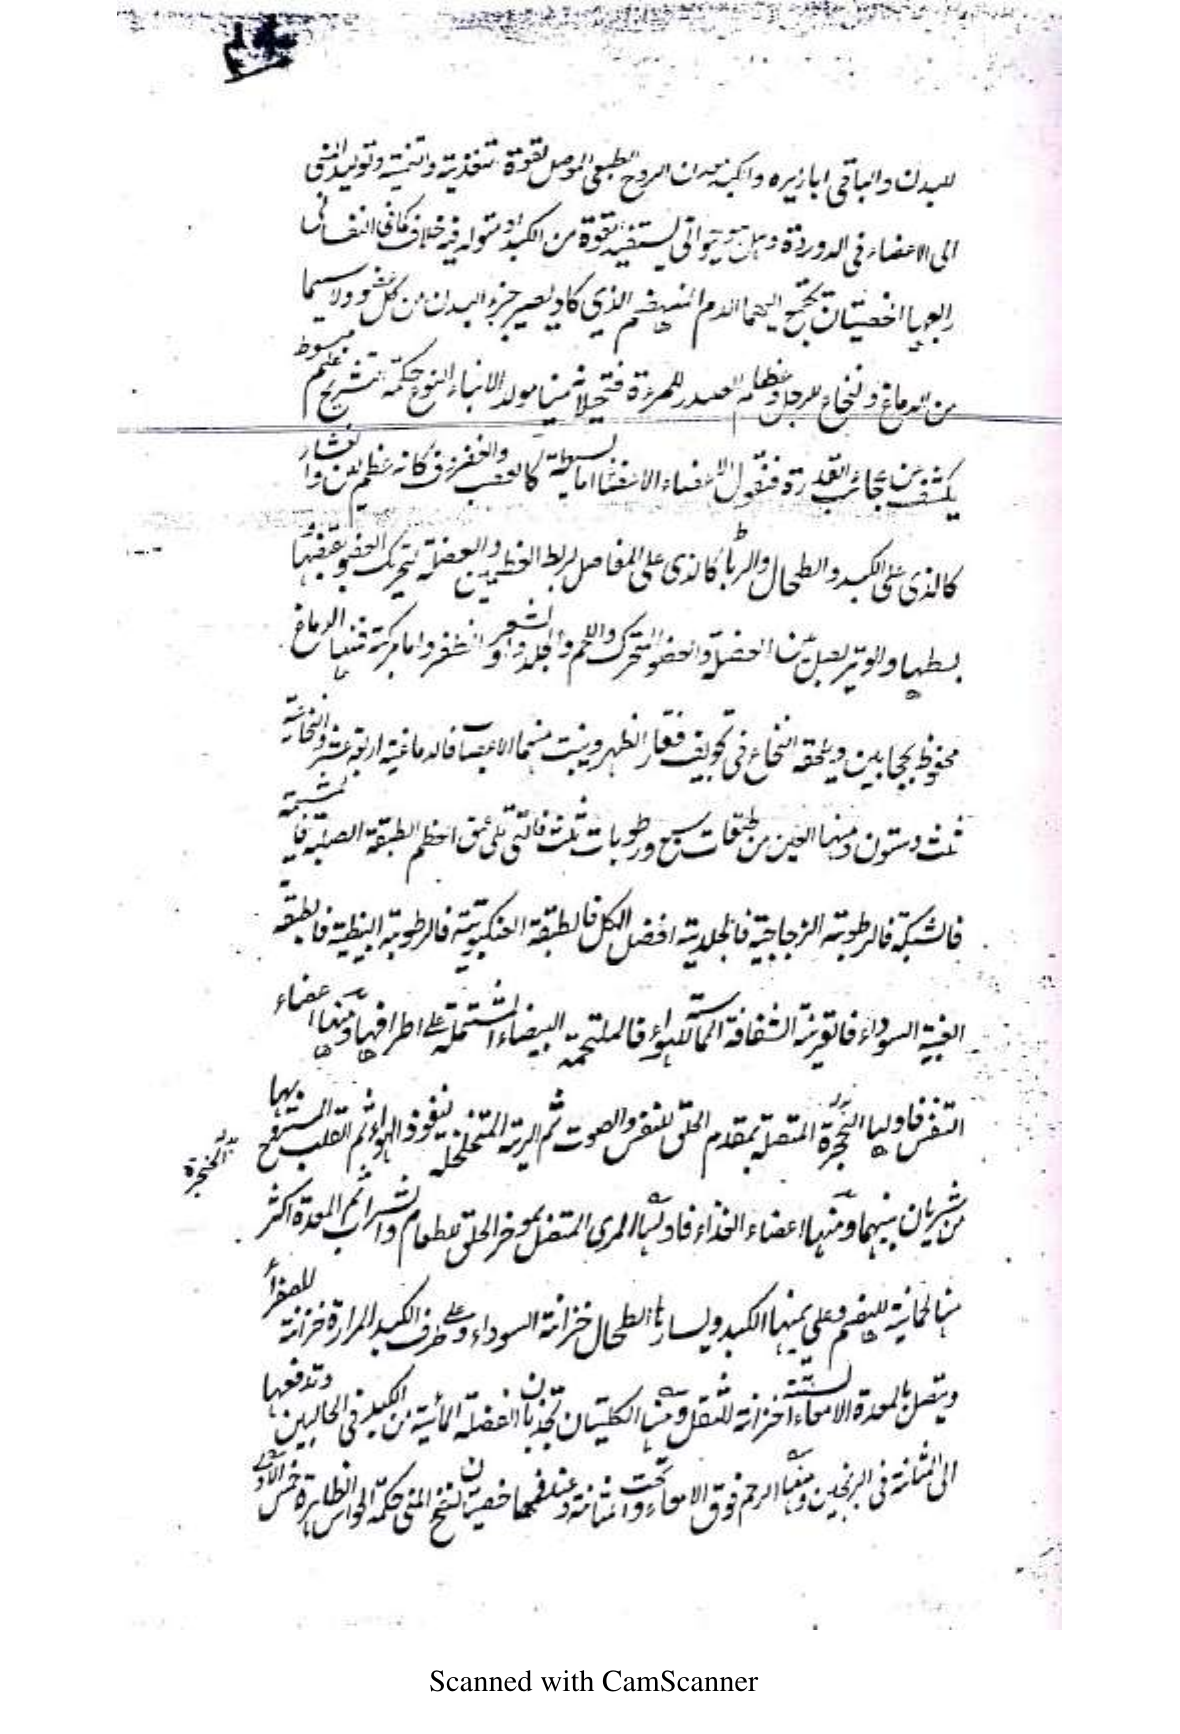 للبدن والباقى ابازيره والكبد معدن الروح الطبعى الموصل لقوة تغذية والتنمية وتوليد المنى
الى الاعضاء فى الدوردة وهل يستفيد القوة من الكبد او متولد فيه خلاف كما فى النفسانى
رابعها اخصيتان يجتمع اليهما الدم المنهضم الذي كاد يصير جزء البدن من كل عضو ولا سيما
من الدماغ والنخاع للرجل وعظام الصدر للمرءة فتحيلانه منيا مولد الانباء النوع حكمة تشريح علم مبسوط
يكشف عن عجائب القدرة فنقول الاعضاء اما بسيطة كالعصب والغضروف كانه عظم لين والغشاء
كالذى على الكبد والطحال والرباط كالذى على المفاصل لربط العظمين والعضلة لتحريك العضو بقبضها
بسطها والوتر يصل بين العضلة والعضو المتحرك واللحم والجلد والشعر والظفر واما مركبة فمنها الدماغ
محفوظ بحجابين ويلحقه النخاع فى تجويف فقار الظهر وينبت منهما الاعصاب فالدماغية اربعة عشر والنخاعية
ثلث وستون ومنها العين من طبقات سبع ورطوبات ثلث فالتى تلى عمق العظم الطبقة الصلبة فالمشيمة
فالشبكة فالرطوبة الزجاجية فالجلدية افضل الكل فالطبقة العنكبوتية فالرطوبة البيضية فالطبقة
العنبية السوداء فالقرنية الشفافة المماسة للهواء فالملتحمة البيضاء المشتملة على اطرافها ومنها اعضاء
التنفس فاوليها الحنجرة المتصلة بمقدم الحلق للتنفس والصوت ثم الرية المتخلخلة لنفوذ الهواء ثم القلب المستروح بها
الحنجرة
من شريان بينهما ومنها اعضاء الغذاء فاوليها المرى المتصل بموخر الحلق للطعام والشراب ثم المعدة اكثر
منها لحانية للهضم وعلى يمينها الكبد ويسارها الطحال خزانة السوداء وعلى طرف الكبد المرارة خزانة للصفراء
ويتصل بالمعدة الامعاء الستة خزانة للثقل ومنها الكليتان تجذبان الفضلة المائية من الكبد فى الحالبين وتدفعها
الى المثانة فى البربخين ومنها الرحم فوق الامعاء وتحت المثانة وعند فمها خصيتان لنضج المنى حكمة الحواس الظاهرة خمس الاولى
Scanned with CamScanner